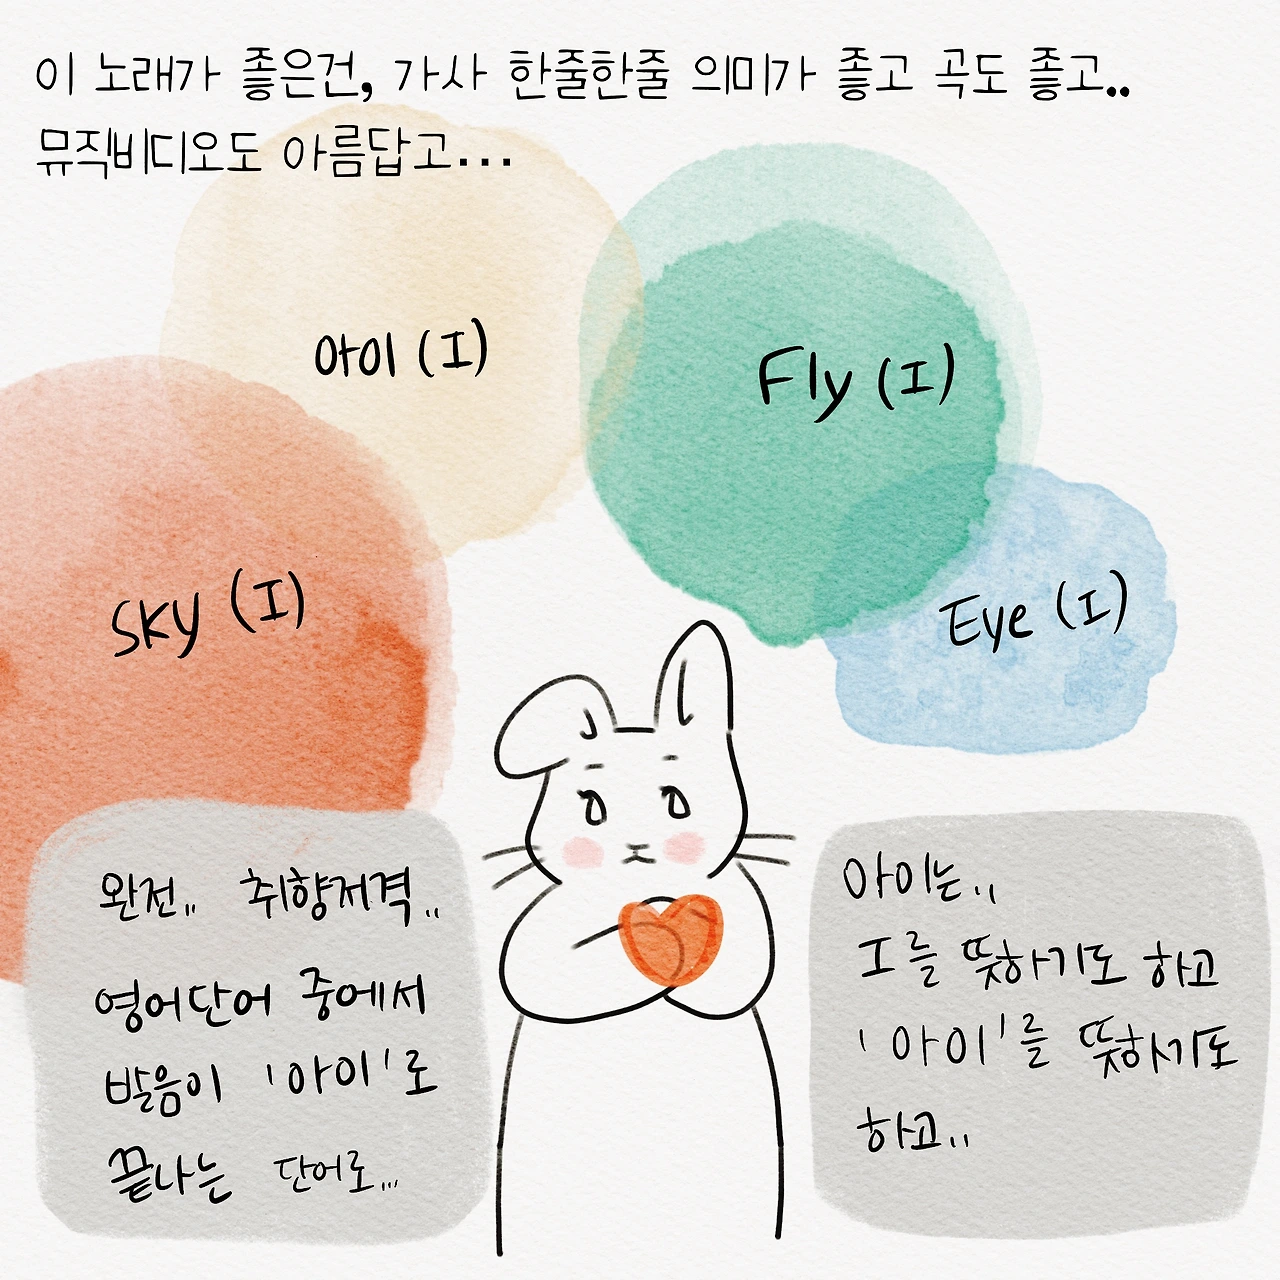 이 노래가 좋은건, 가사 한줄한줄 의미가 좋고 곡도 좋고..
뮤직비디오도 아름답고...
아이 (I)
Fly (I)
Sky (I)
Eye (I)
완전.. 취향저격..
영어단어 중에서
발음이 '아이'로
끝나는 단어로...
아이는..
I를 뜻하기도 하고
'아이'를 뜻하기도
하고..